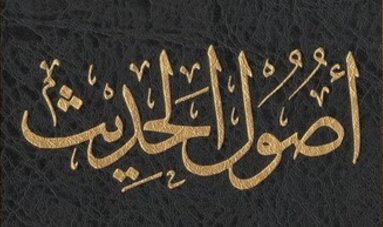 أُصُولُ الحَدِيثِ